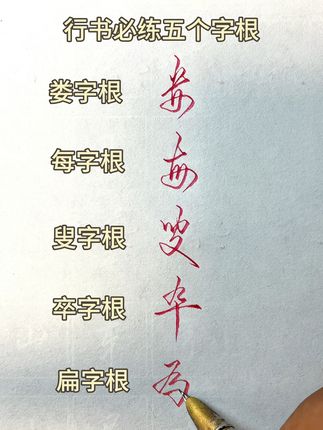 行书必练五个字根
娄字根 娄
每字根 每
叟字根 叟
卒字根 卒
扁字根